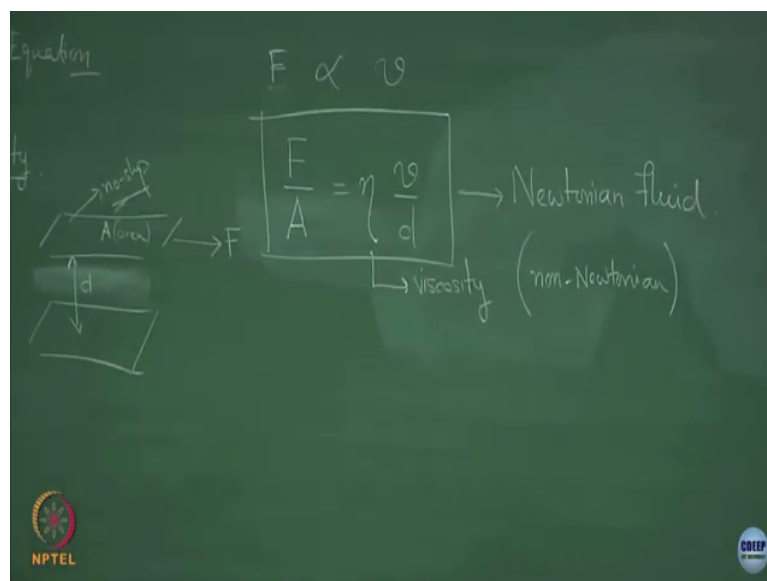 Equation
F ∝ v
ty.
no-slip
A(area)
→ F
d
F/A = η v/d → Newtonian fluid.
→ viscosity
(non-Newtonian)
NPTEL
CDEEP